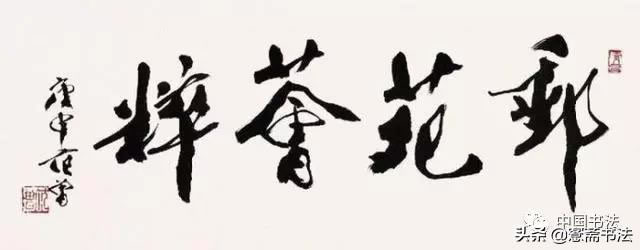 郵苑薈粹
庚申范曾
中国书法
头条 @斋书法